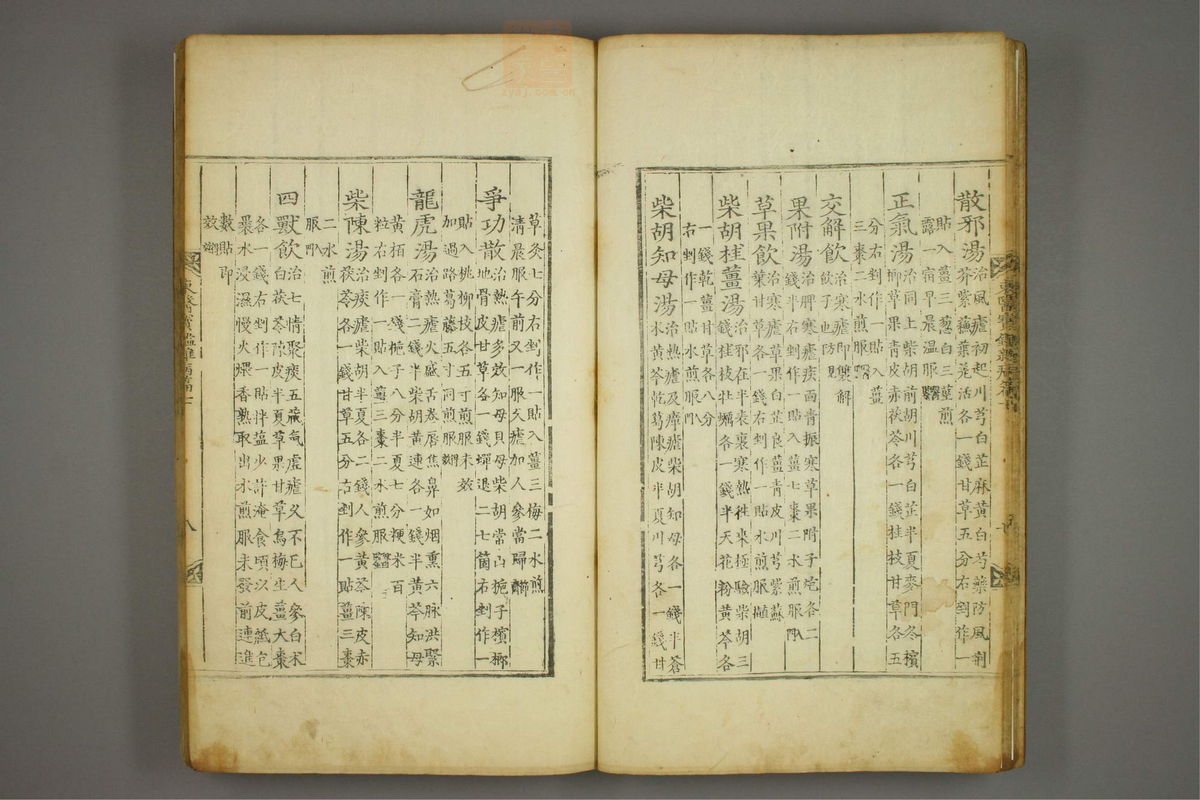 散邪湯治風瘧初起川芎白芷麻黃白芍藥防風荊
芥紫蘇葉羌活各一錢甘草五分右剉作一
貼入薑三葱白三莖煎
露一宿早晨溫服
正氣湯治同上柴胡前胡川芎白芷半夏麥門冬檳
榔草果青皮赤茯苓各一錢桂枝甘草各五
分右剉作一貼入薑
三棗二水煎服
交解飮治寒瘧卽雙解
飮子也防見
果附湯治脾寒瘧疾面靑振寒草果附子炮各二
錢半右剉作一貼入薑七棗二水煎服
草果飮治寒瘧草果白芷良薑靑皮川芎紫蘇
葉甘草各一錢右剉作一貼水煎服
柴胡桂薑湯治邪在半表裏寒熱往來極驗柴胡三
錢桂枝牡蠣各一錢半天花粉黃芩各
一錢乾薑甘草各八分
右剉作一貼水煎服
柴胡知母湯治熱瘧及瘴瘧柴胡知母各一錢半蒼
朮黃芩乾葛陳皮半夏川芎各一錢甘
草炙七分右剉作一貼入薑三梅二水煎
淸晨服午前又一服久瘧加人參當歸
爭功散治熱瘧多效知母貝母柴胡常山梔子檳榔
地骨皮甘草各一錢蟬退二七箇右剉作一
貼入桃柳枝各五寸煎服未效
加過路葛藤五寸同煎服
龍虎湯治熱瘧火盛舌卷唇焦鼻如烟熏六脉洪緊
石膏二錢半柴胡黃連各一錢半黃芩知母
黃栢各一錢梔子八分半夏七分粳米百
粒右剉作一貼入薑三棗二水煎服
柴陳湯治痰瘧柴胡半夏各二錢人參黃芩陳皮赤
茯苓各一錢甘草五分右剉作一貼薑三棗
二水煎
服
四獸飮治七情聚痰五藏氣虛瘧久不已人參白朮
白茯苓陳皮半夏草果甘草烏梅生薑大棗
各一錢右剉作一貼拌鹽少許淹食頃以皮紙包
裹水浸濕慢火煨香熟取出水煎服未發前連進
數貼卽
效
東醫寶鑑雜病篇七